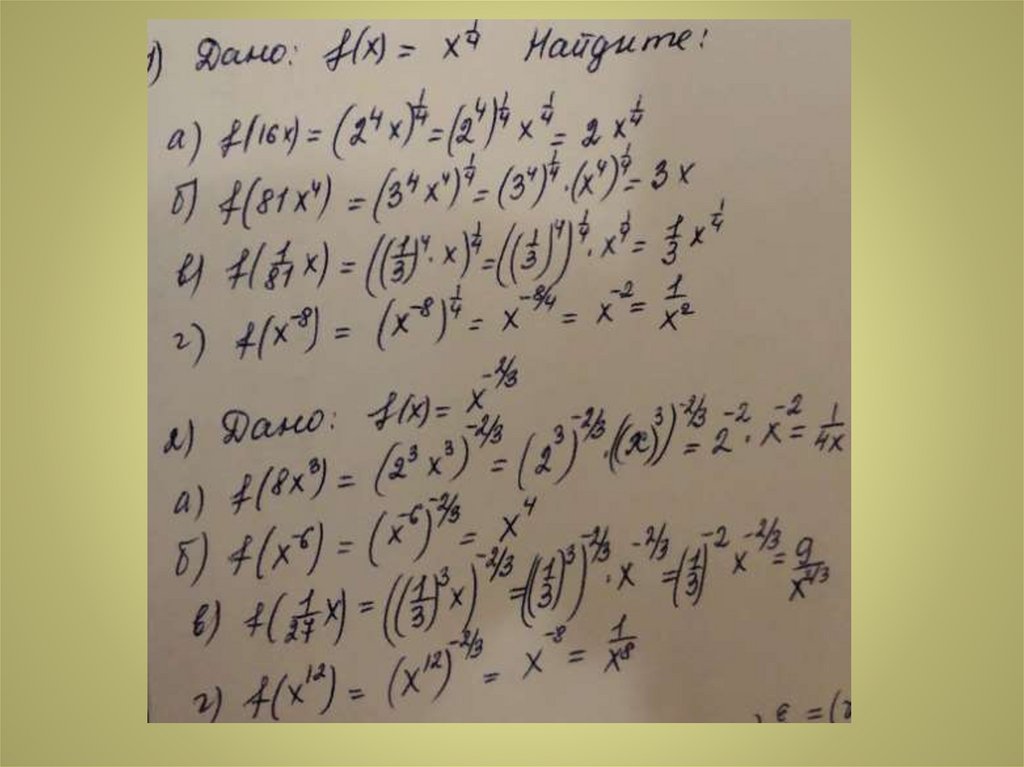 1) Дано: f(x) = x^{1/4} Найдите:
а) f(16x) = (2^4 x)^{1/4} = (2^4)^{1/4} x^{1/4} = 2 x^{1/4}
б) f(81x^4) = (3^4 x^4)^{1/4} = (3^4)^{1/4} · (x^4)^{1/4} = 3x
в) f(1/81 x) = ((1/3)^4 · x)^{1/4} = ((1/3)^4)^{1/4} · x^{1/4} = 1/3 x^{1/4}
г) f(x^{-8}) = (x^{-8})^{1/4} = x^{-8/4} = x^{-2} = 1/x^2
2) Дано: f(x) = x^{-2/3}
а) f(8x^3) = (2^3 x^3)^{-2/3} = (2^3)^{-2/3} · ((x)^3)^{-2/3} = 2^{-2} · x^{-2} = 1/4x
б) f(x^{-6}) = (x^{-6})^{-2/3} = x^4
в) f(1/27 x) = ((1/3)^3 x)^{-2/3} = ((1/3)^3)^{-2/3} · x^{-2/3} = (1/3)^{-2} x^{-2/3} = 9/x^{2/3}
г) f(x^{12}) = (x^{12})^{-2/3} = x^{-8} = 1/x^8